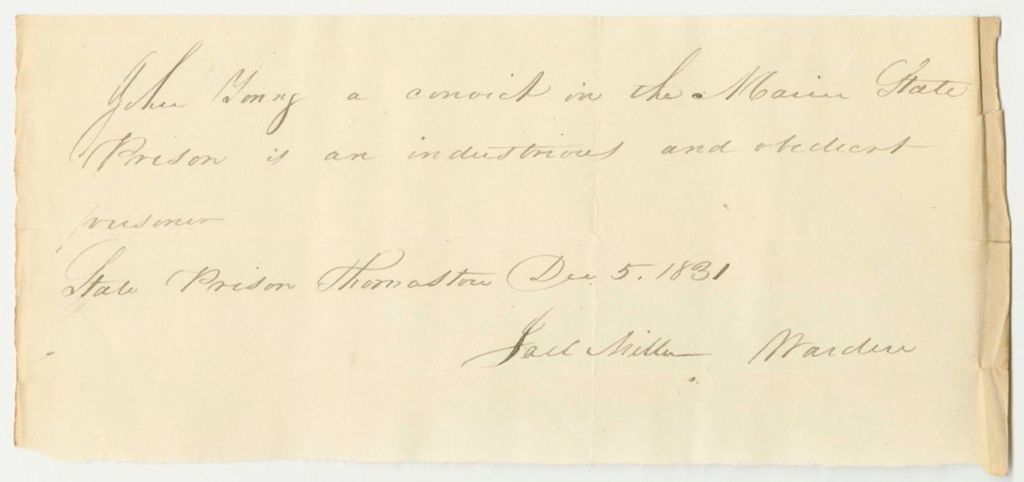 John Young a convict in the Maine State
Prison is an industrious and obedient
prisoner
State Prison Thomaston Dec 5. 1831
Joel Miller Warden